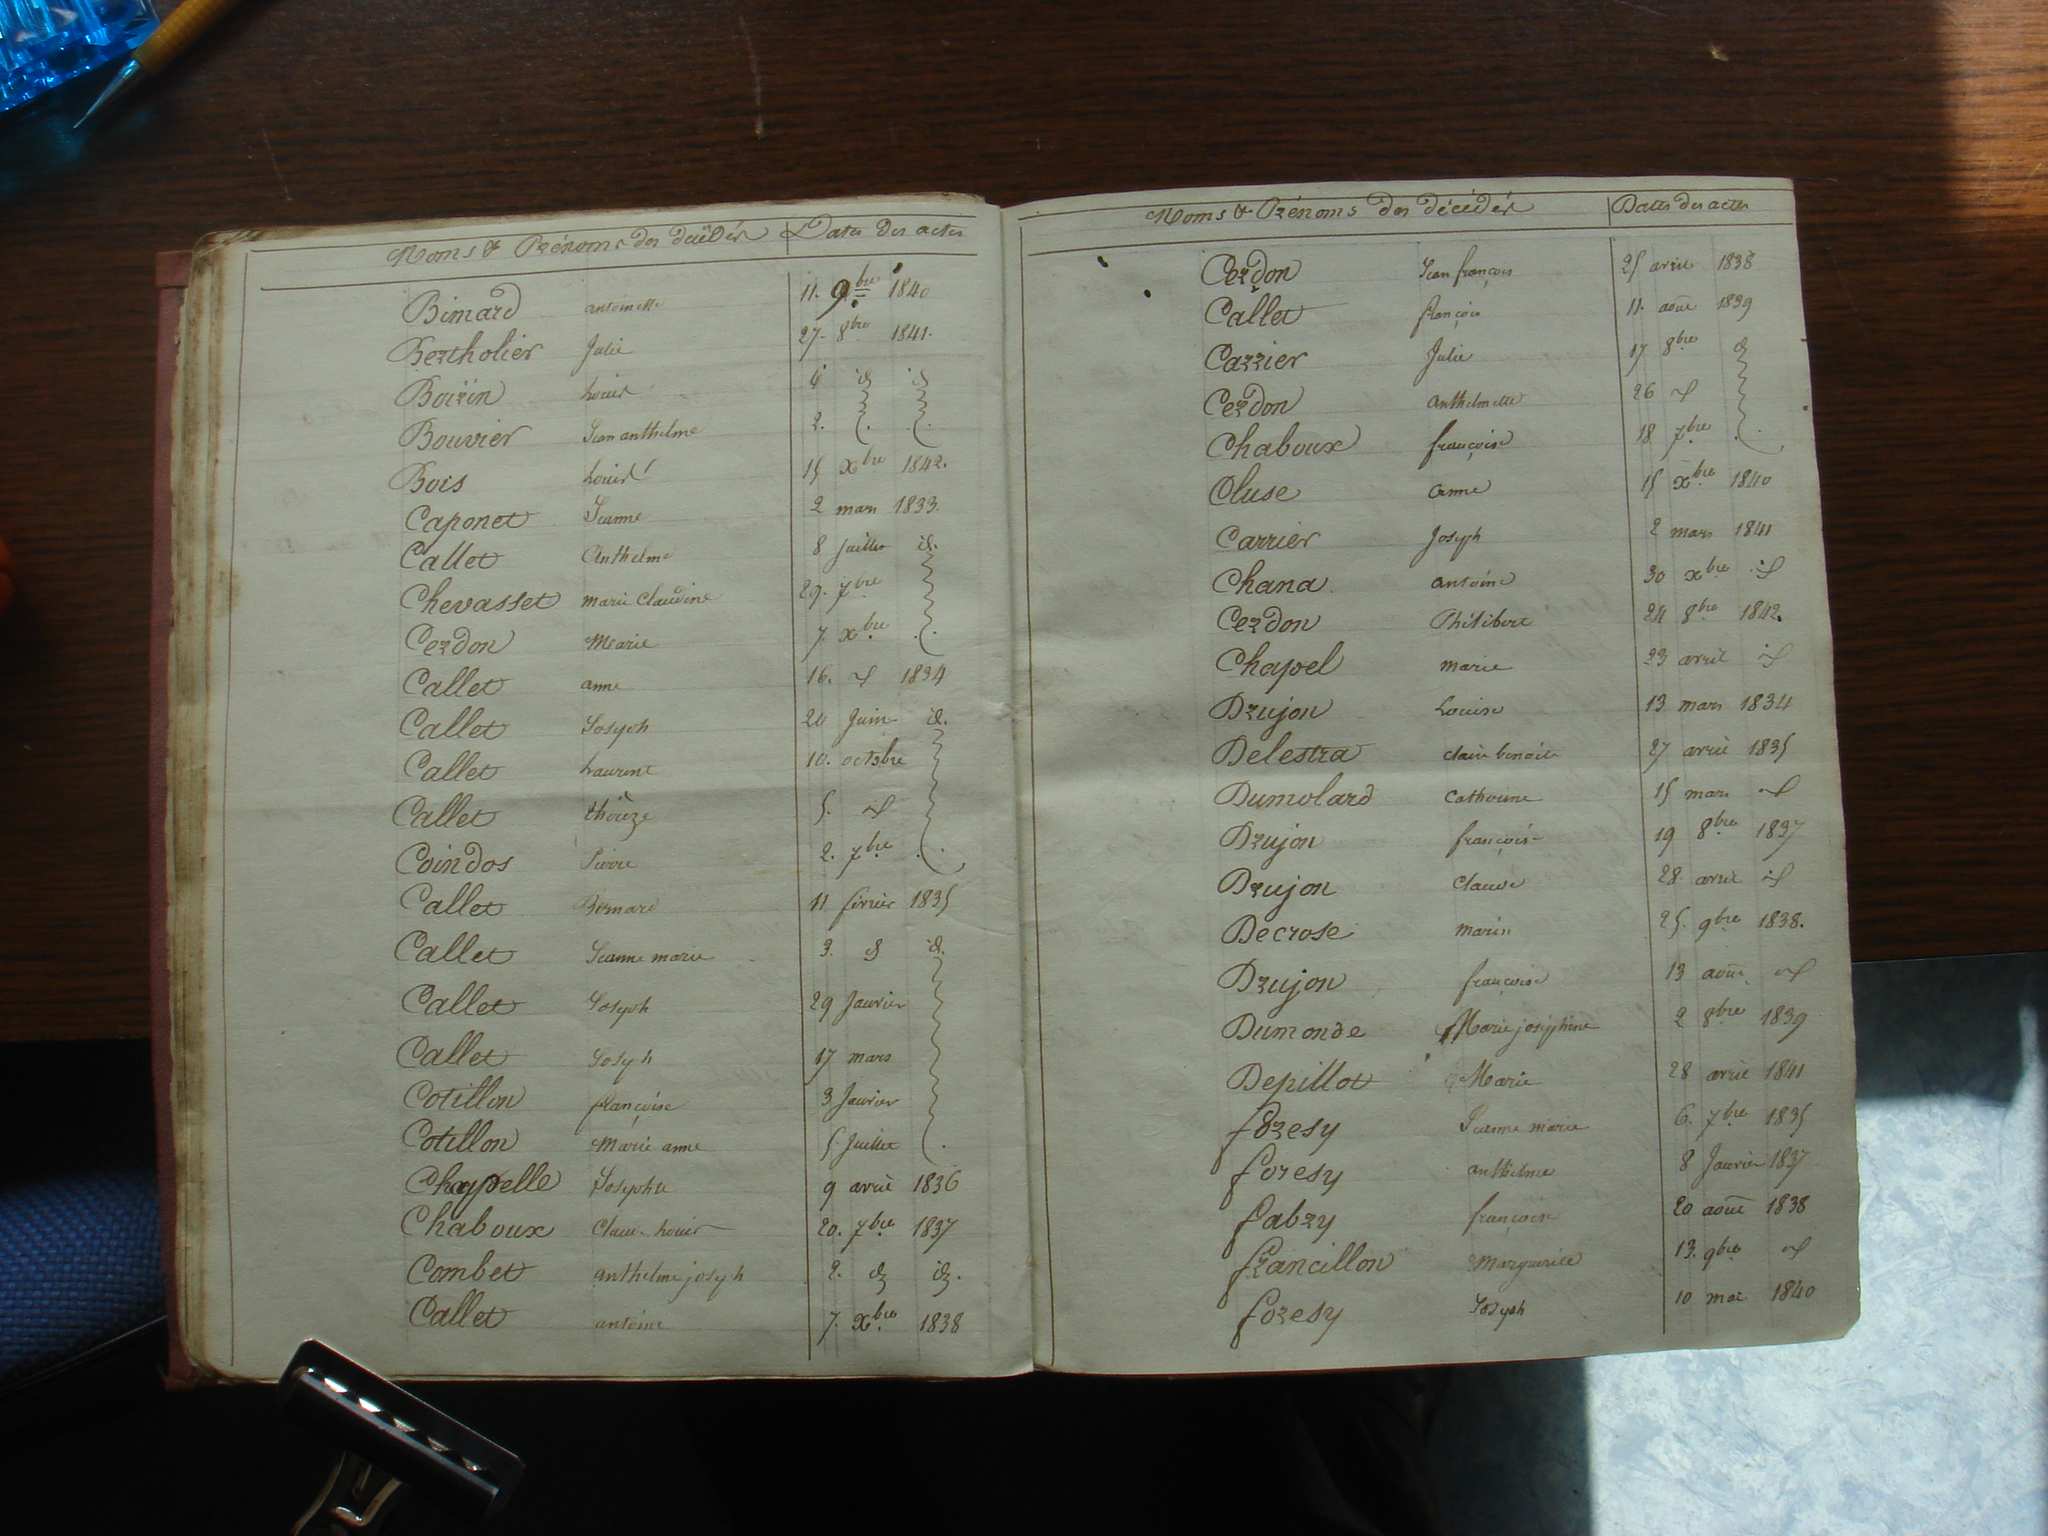 Noms & Prénoms des décédés Dates des actes
Bimard antoinette 11. 9bre 1840
Bertholier Julie 27. 8bre 1841.
Boirin Louis 4 id id
Bouvier Jean anthelme 2.
Bois Louis 15 xbre 1842.
Caponet Jeanne 2 mars 1833.
Callet Anthelme 8 Juillet id.
Chevasset marie Claudine 29. 7bre
Cerdon Marie 7. xbre
Callet anne 16. id 1834
Callet Joseph 20 Juin id.
Callet Laurent 10. octobre
Callet 5. id
Coindos Pierre 2. 7bre
Callet Bernard 11 février 1835
Callet Jeanne marie 3. id id.
Callet Joseph 29 Janvier
Callet Joseph 17 mars
Cotillon françoise 3 Janvier
Cotillon Marie anne 5 Juillet
Chappelle Josephte 9 avril 1836
Chaboux Claude Louis 20. 7bre 1837
Combet anthelme joseph 2. id id.
Callet antoine 7. xbre 1838
Noms & Prénoms des décédés Dates des actes
Cerdon Jean françois 25 avril 1838
Callet françois 11. août 1839
Carrier Julie 17 8bre id
Cerdon Anthelmette 26 id
Chaboux françoise 18 7bre
Cluse anne 15 xbre 1840
Carrier Joseph 2 mars 1841
Chana antoine 30 xbre id
Cerdon Philibert 24 8bre 1842.
Chapel marie 23 avril id
Drujon Louise 13 mars 1834
Delestra claire benoite 27 avril 1835
Dumolard Catherine 15 mars id
Drujon françois 19 8bre 1837
Drujon Claude 28 avril id
Decrose marin 25. 9bre 1838.
Drujon françoise 13 août id
Dumonde Marie joséphine 2 8bre 1839
Depillot Marie 28 avril 1841
foresy Jeanne marie 6. 7bre 1835
foresy anthelme 8 Janvier 1837
fabry françoise 20 août 1838
francillon Marguerite 13. 9bre id
foresy Joseph 10 mai 1840